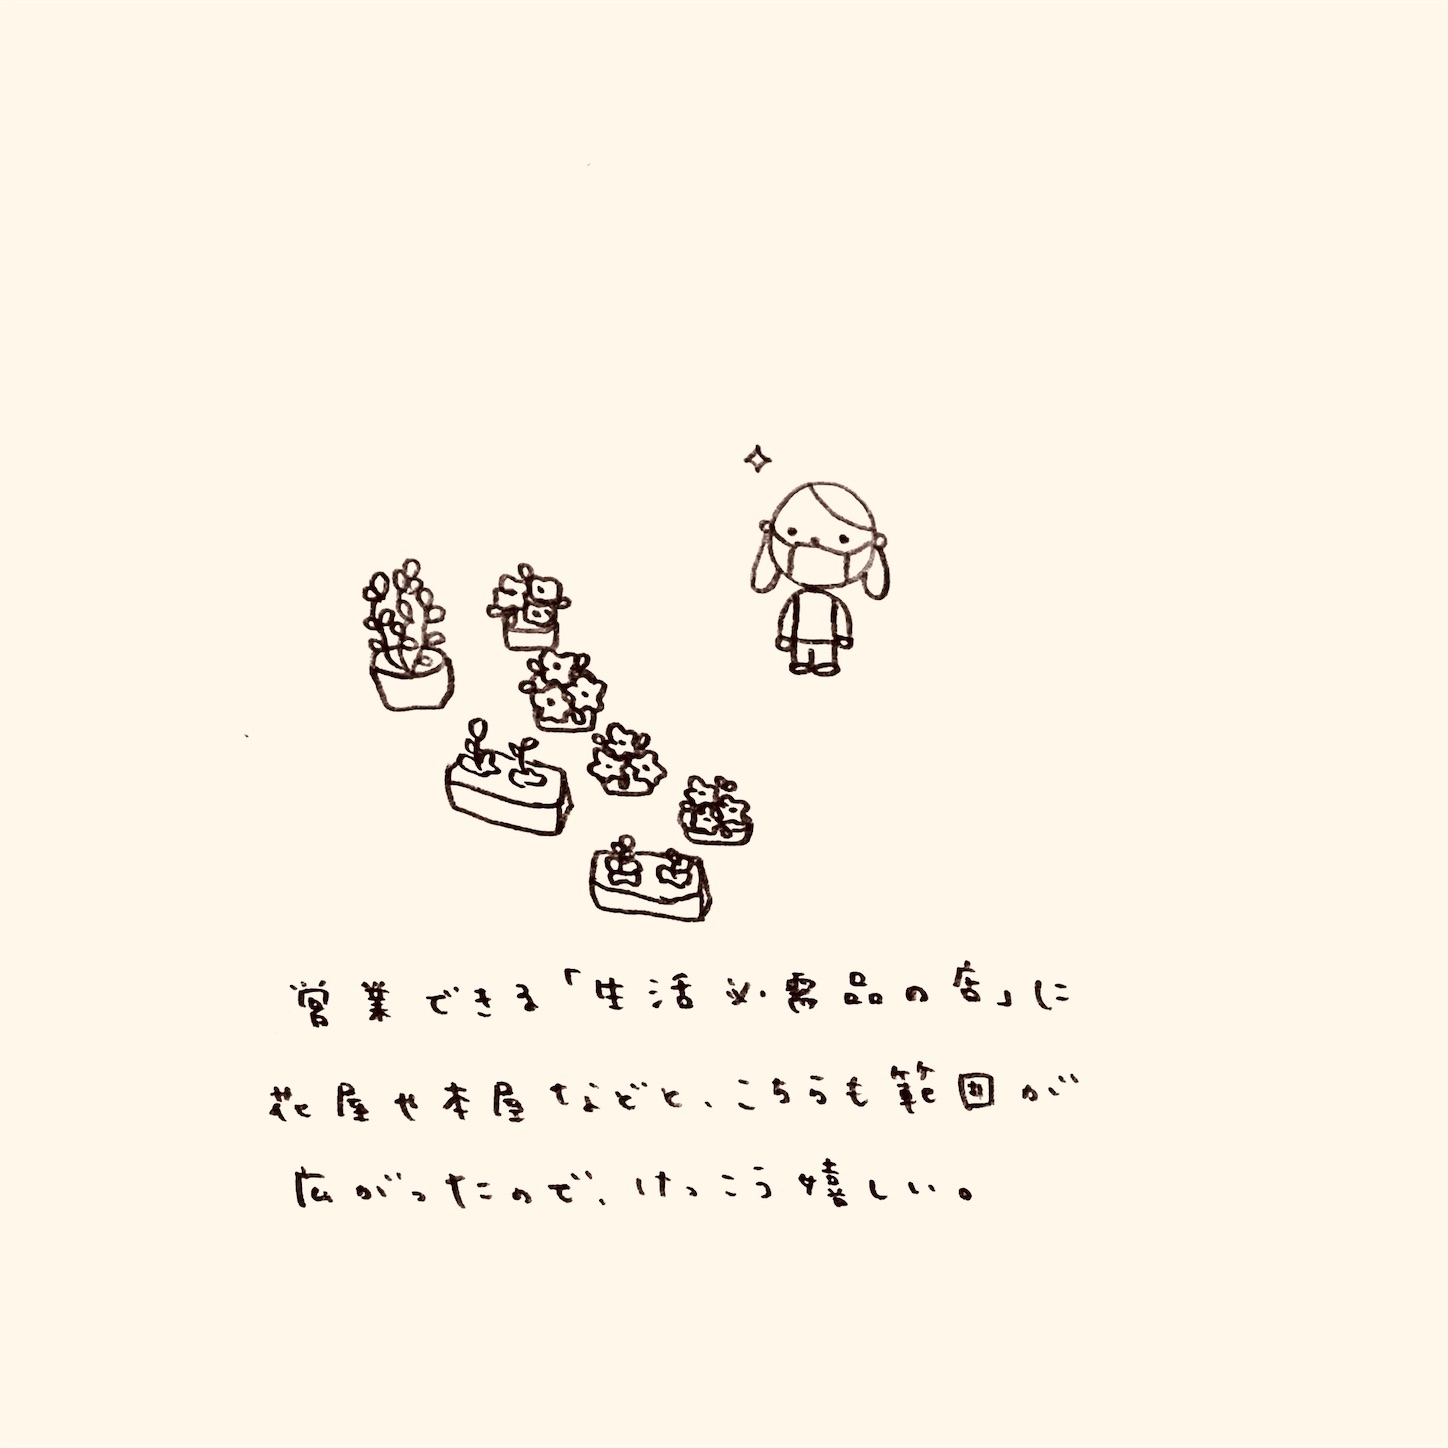 営業できる「生活必需品の店」に
花屋や本屋などと、こちらも範囲が
広がったので、けっこう嬉しい。